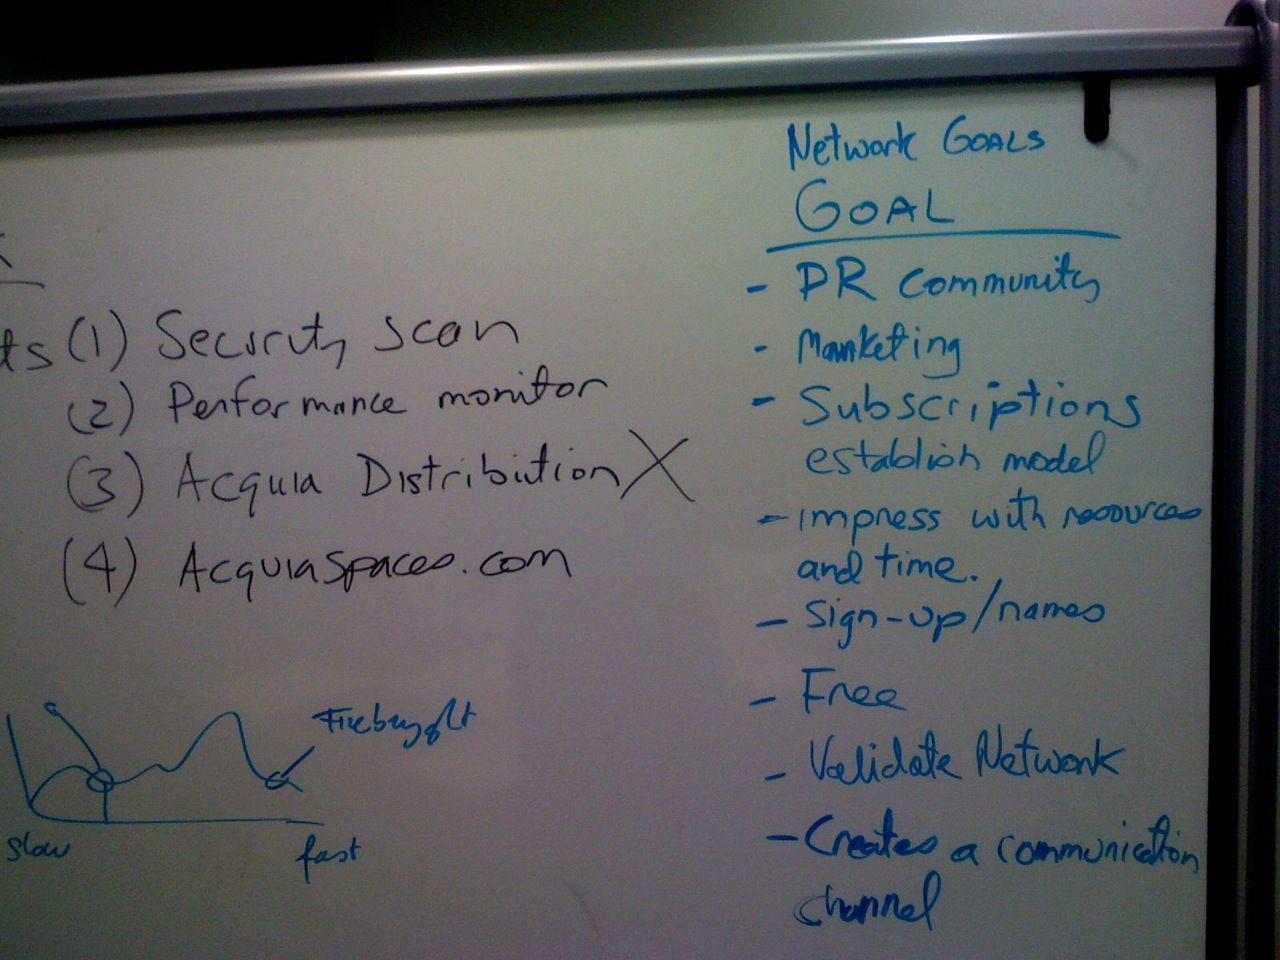 ts (1) Security scan
(2) Performance monitor
(3) Acquia Distribution X
(4) Acquiaspaces.com
slow
fast
Network GOALS
GOAL
- PR community
- Marketing
- Subscriptions
establish model
- impress with resources
and time.
- Sign-up/names
- Free
- Validate Network
- Creates a communication
channel